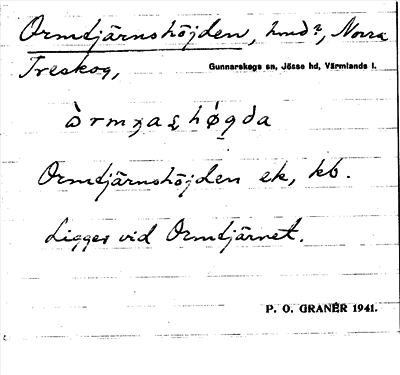 Ormtjärnshöjden, hmd?, Norra
Treskog, Gunnarskogs sn, Jösse hd, Värmlands l.
Ormtjärnshöjden ek, kb.
Ligger vid Ormtjärnet.
P. O. GRANÉR 1941.